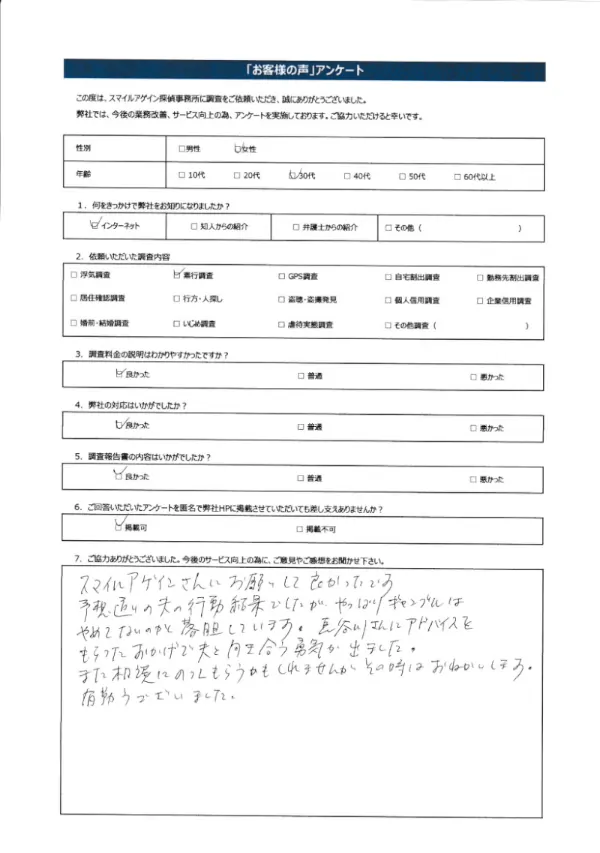 「お客様の声」アンケート
この度は、スマイルアゲイン探偵事務所に調査をご依頼いただき、誠にありがとうございました。
弊社では、今後の業務改善、サービス向上の為、アンケートを実施しております。ご協力いただけると幸いです。
性別 □男性 ☑女性
年齢 □10代 □20代 ☑30代 □40代 □50代 □60代以上
1．何をきっかけで弊社をお知りになりましたか？
☑インターネット □知人からの紹介 □弁護士からの紹介 □その他（ ）
2．依頼いただいた調査内容
□浮気調査 ☑素行調査 □GPS調査 □自宅割出調査 □勤務先割出調査
□居住確認調査 □行方・人探し □盗聴・盗撮発見 □個人信用調査 □企業信用調査
□婚前・結婚調査 □いじめ調査 □虐待実態調査 □その他調査（ ）
3．調査料金の説明はわかりやすかったですか？
☑良かった □普通 □悪かった
4．弊社の対応はいかがでしたか？
☑良かった □普通 □悪かった
5．調査報告書の内容はいかがでしたか？
☑良かった □普通 □悪かった
6．ご回答いただいたアンケートを匿名で弊社HPに掲載させていただいても差し支えありませんか？
☑掲載可 □掲載不可
7．ご協力ありがとうございました。今後のサービス向上の為に、ご意見やご感想をお聞かせ下さい。
スマイルアゲインさんにお願いして良かったです
予想通りの夫の行動結果でしたが、やっぱりギャンブルは
やめてないのかと落胆しています。長谷川さんにアドバイスを
もらったおかげで夫と向き合う勇気が出ました。
また相談にのってもらうかもしれませんがその時はおねがいします。
有難うございました。